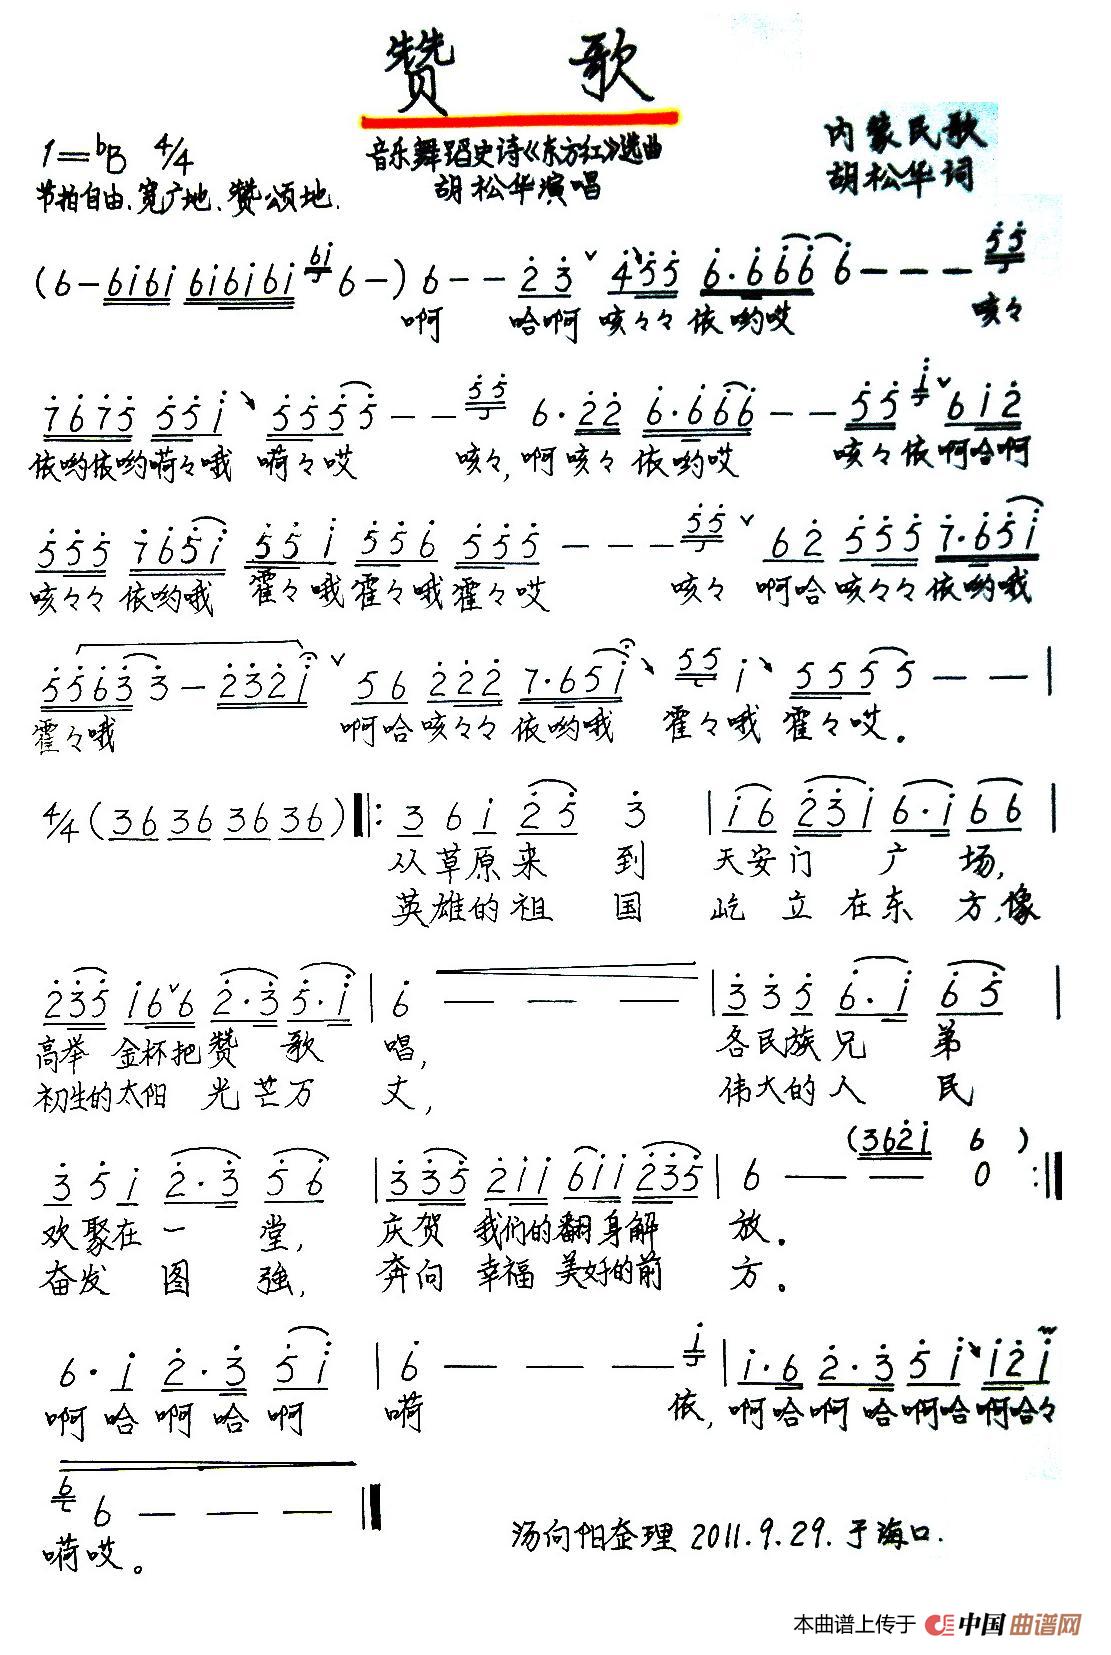 赞 歌
音乐舞蹈史诗《东方红》选曲
胡松华演唱
内蒙民歌
胡松华词
1=bB 4/4
节拍自由、宽广地、赞颂地.
(6-6i6i 6i6i6i 6i 6-) 6-- 2 3 ∨ 4 5 5 6·6 6 6 6--- 5 5
啊 哈啊 咳々々 依哟哎 咳々
7 6 7 5 5 5 i 5 5 5 5 -- 5 5 6·2 2 6·6 6 6 -- 5 5 i ∨ 6 i 2
依哟依哟嗬々哦 嗬々哎 咳々,啊咳々 依哟哎 咳々依啊哈啊
5 5 5 7 6 5 i 5 5 i 5 5 6 5 5 5 --- 5 5 ∨ 6 2 5 5 5 7·6 5 i
咳々々 依哟哦 霍々哦霍々哦霍々哎 咳々 啊哈咳々々依哟哦
5 5 6 3 3 - 2 3 2 i ∨ 5 6 2 2 2 7·6 5 i 5 5 i 5 5 5 5 -- |
霍々哦 啊哈咳々々 依哟哦 霍々哦 霍々哎。
4/4 (36 36 36 36) ‖: 3 6 i 2 5 3 | i 6 2 3 i 6·i 6 6 |
从草原来 到 天安门 广 场,
英雄的祖 国 屹 立 在东 方,像
2 3 5 i 6∨6 2·3 5·i | 6 — — — | 3 3 5 6·i 6 5 |
高举 金杯把赞 歌 唱, 各民族兄 弟
初生的太阳 光芒万 丈, 伟大的人 民
(362i 6 )
3 5 i 2·3 5 6 | 3 3 5 2 i i 6 i i 2 3 5 | 6 — — 0 :‖
欢聚在一 堂, 庆贺 我们的翻身解 放。
奋发 图 強, 奔向 幸福 美好的前 方。
6·i 2·3 5 i | 6 — — — i | i·6 2·3 5 i i 2 i
啊哈啊哈啊 嗬 依,啊哈啊 哈啊哈啊哈々
6 6 — — — ‖
嗬哎。
汤向阳整理 2011.9.29.于海口.
本曲谱上传于 中国曲谱网